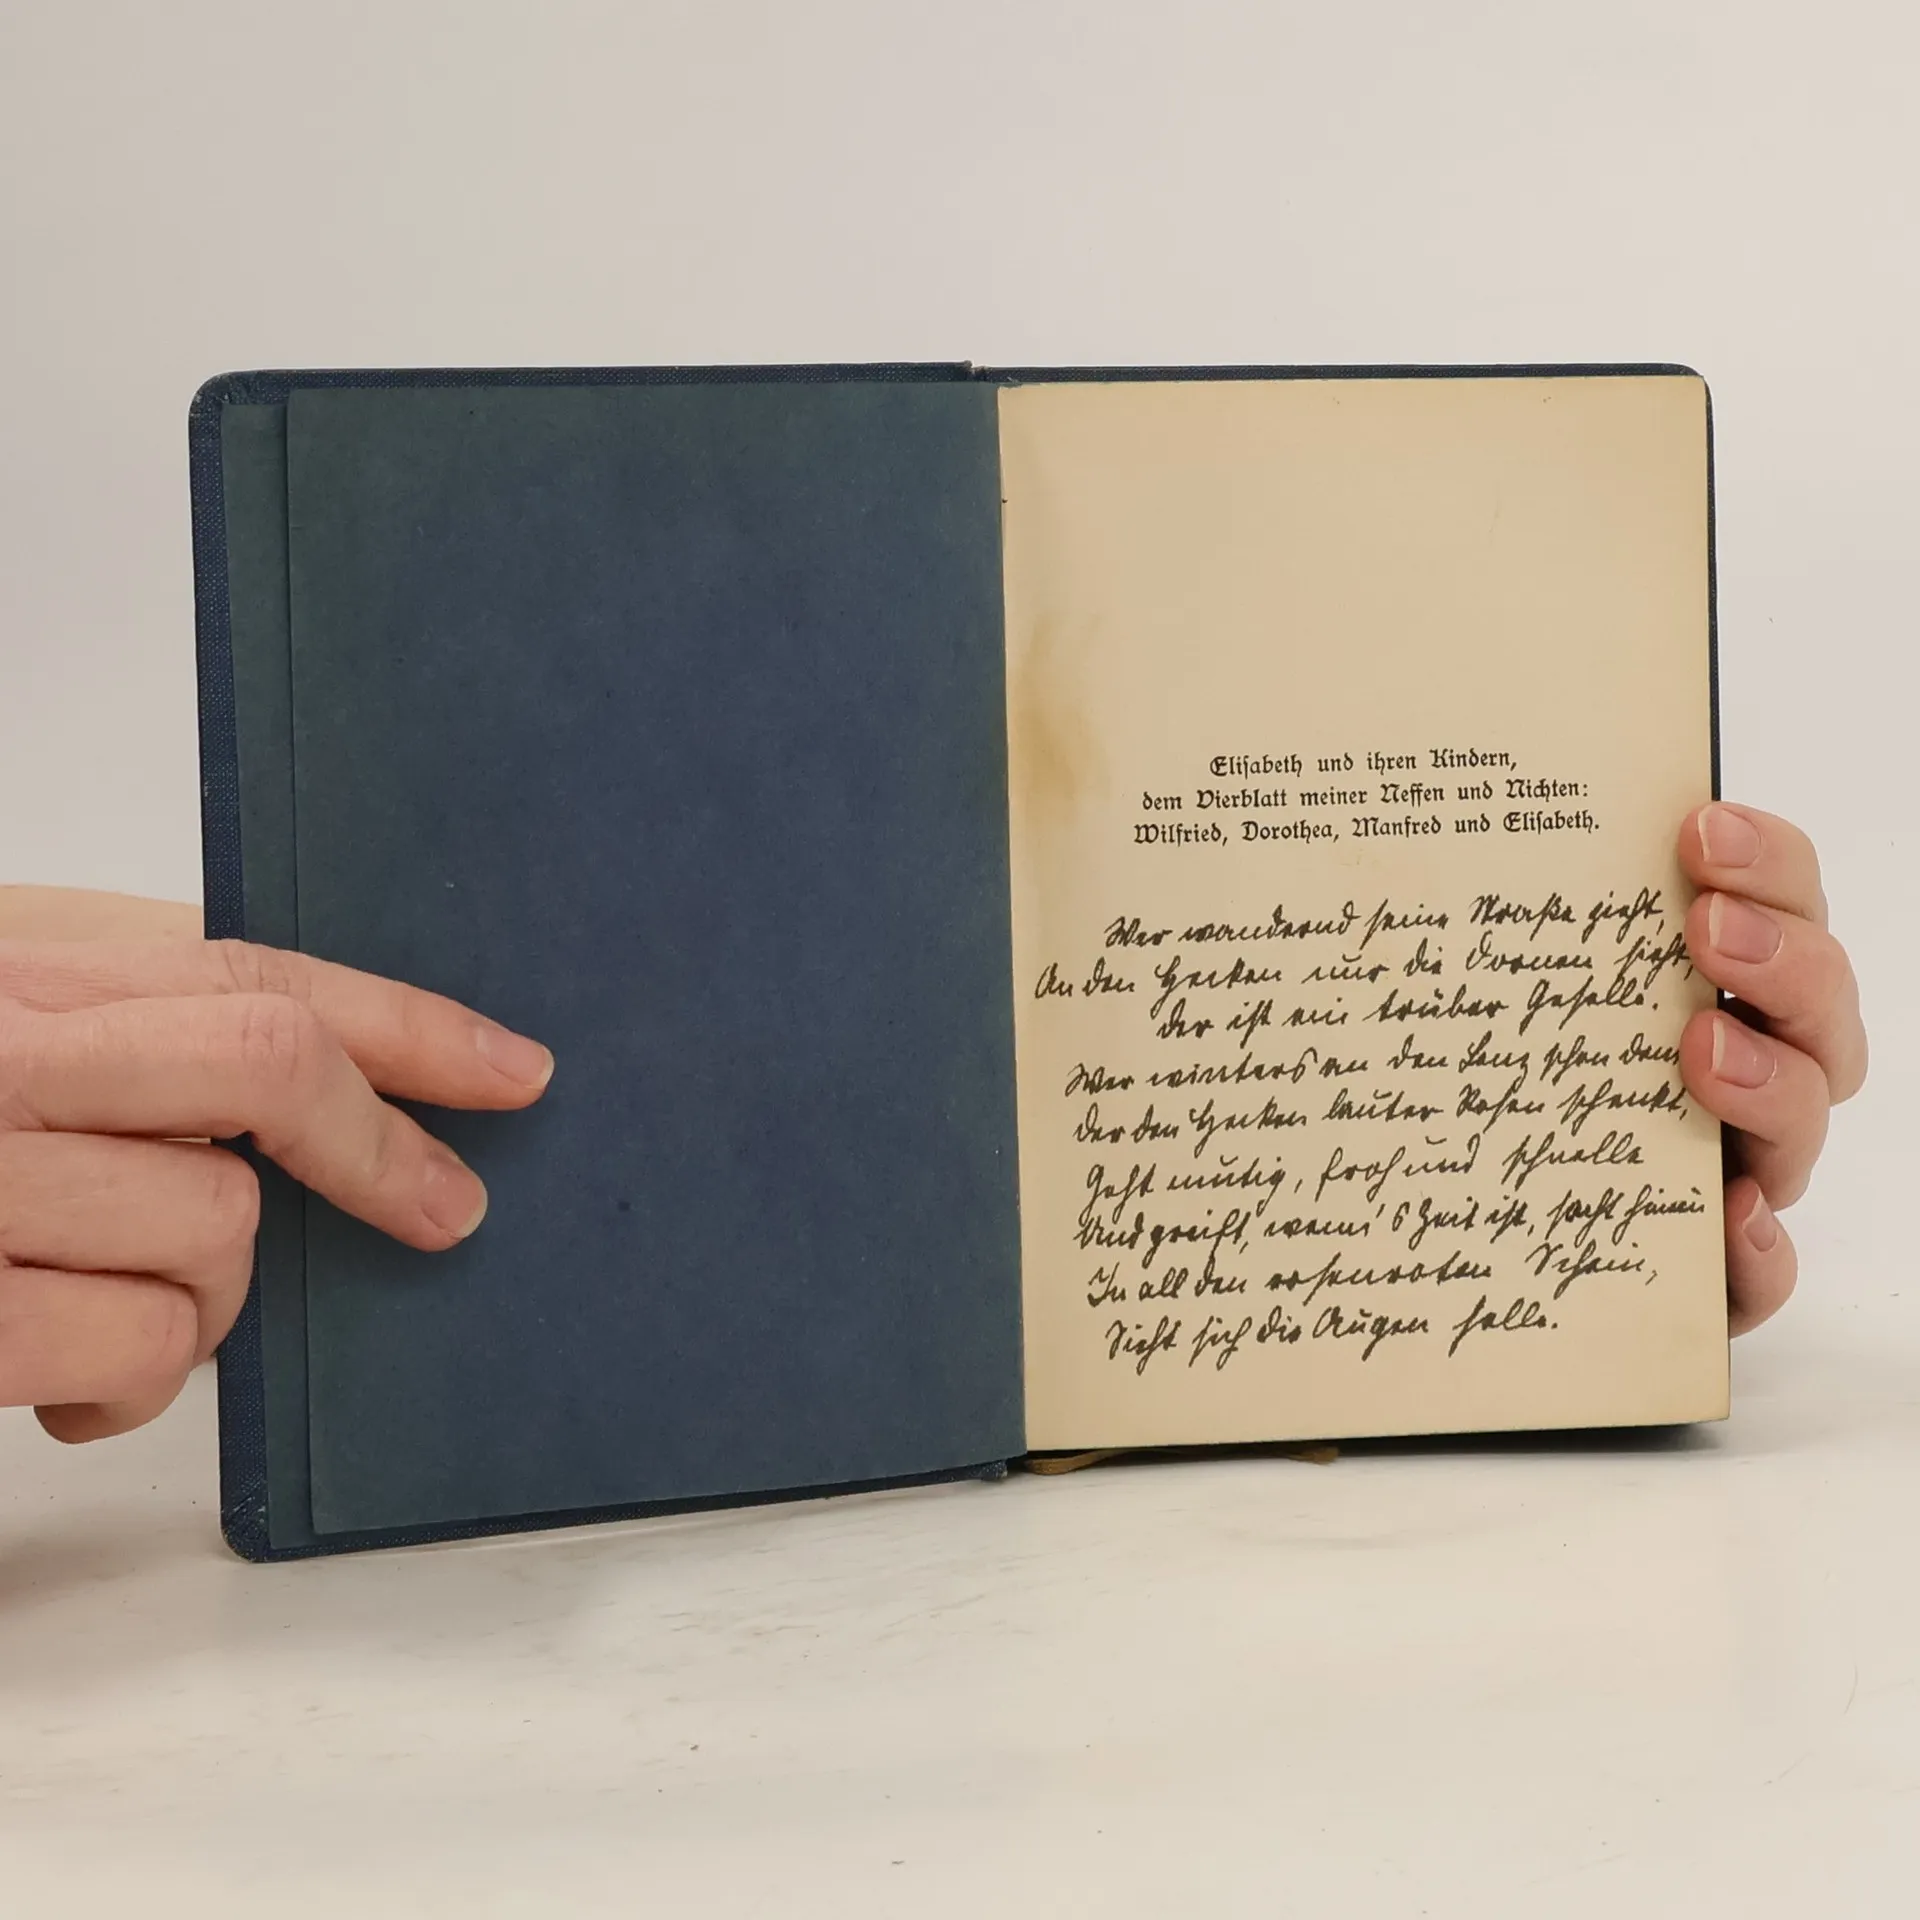 Elisabeth und ihren Kindern,
dem Vierblatt meiner Neffen und Nichten:
Wilfried, Dorothea, Manfred und Elisabeth.
Wer wandernd seine Straße zieht,
An den Hecken nur die Dornen sieht,
der ist ein trüber Geselle.
Wer winters an den Lenz schon denkt
der den Hecken lauter Rosen schenkt,
Geht mutig, froh und schnelle
Und greift, wenn's Zeit ist, sacht hinein
In all den rosenroten Schein,
Sieht sich die Augen helle.